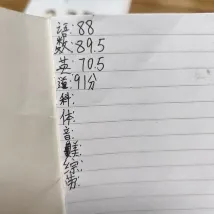 语:88
数:89.5
英:70.5
道:91分
科:
体:
音:
美:
综:
劳: